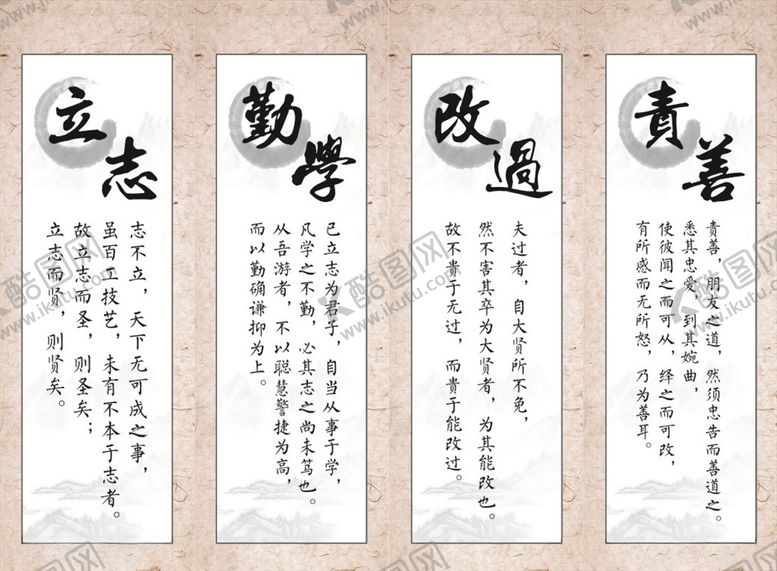 立志
志不立，天下无可成之事，
虽百工技艺，未有不本于志者。
故立志而圣，则圣矣；
立志而贤，则贤矣。
勤學
已立志为君子，自当从事于学，
凡学之不勤，必其志之尚未笃也。
从吾游者，不以聪慧警捷为高，
而以勤确谦抑为上。
改過
夫过者，自大贤所不免，
然不害其卒为大贤者，为其能改也。
故不贵于无过，而贵于能改过。
責善
责善，朋友之道，然须忠告而善道之。
悉其忠爱，到其婉曲，
使彼闻之而可从，绎之而可改，
有所感而无所怒，乃为善耳。
酷图网
www.ikutu.com